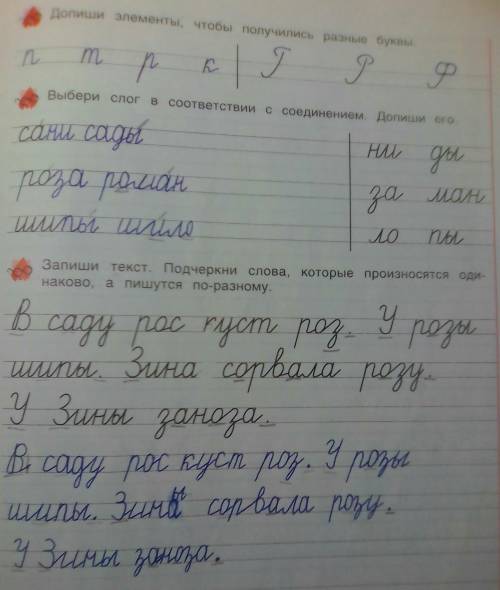 Допиши элементы, чтобы получились разные буквы.
п т р к Г Р Ф
Выбери слог в соответствии с соединением. Допиши его.
са́ни сады́ ни ды
ро́за рома́н за ман
шипы́ ши́ло ло пы
Запиши текст. Подчеркни слова, которые произносятся оди-
наково, а пишутся по-разному.
В саду рос куст роз. У розы
шипы. Зина сорвала розу.
У Зины заноза.
В саду рос куст роз. У розы
шипы. сорвала розу.
У Зины заноза.